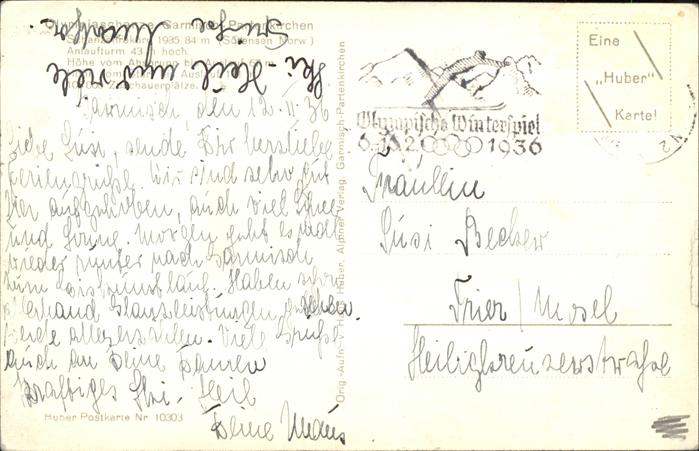 Olympiaschanze Garmisch-Partenkirchen
Schanzenrekord 1935 84 m (Sörensen Norw.)
Anlaufturm 43 m hoch.
Höhe vom
Zuschauerplätze.
Ski-Heil und viele
Grüße
Garmisch, den 12.II.36
Liebe Susi, sende Dir herzliche
Feriengrüße. Wir sind sehr gut
hier aufgehoben, auch viel Schnee
und Sonne. Morgen geht es
wieder runter nach Garmisch
zum Eiskunstlauf. Haben schon
allerhand Glanzleistungen gesehen.
Werde alles erzählen. Viele Grüße
auch an Deine Damen
kräftiges Ski-Heil
Deine Maus
Huber Postkarte Nr 10303
Orig.-Aufn. v. H. Huber, Alpiner Verlag, Garmisch-Partenkirchen
Olympische Winterspiel
6.-16.2. 1936
Eine
„Huber"
Karte!
Fräulein
Susi Becker
Trier/Mosel
Heiligkreuzerstraße